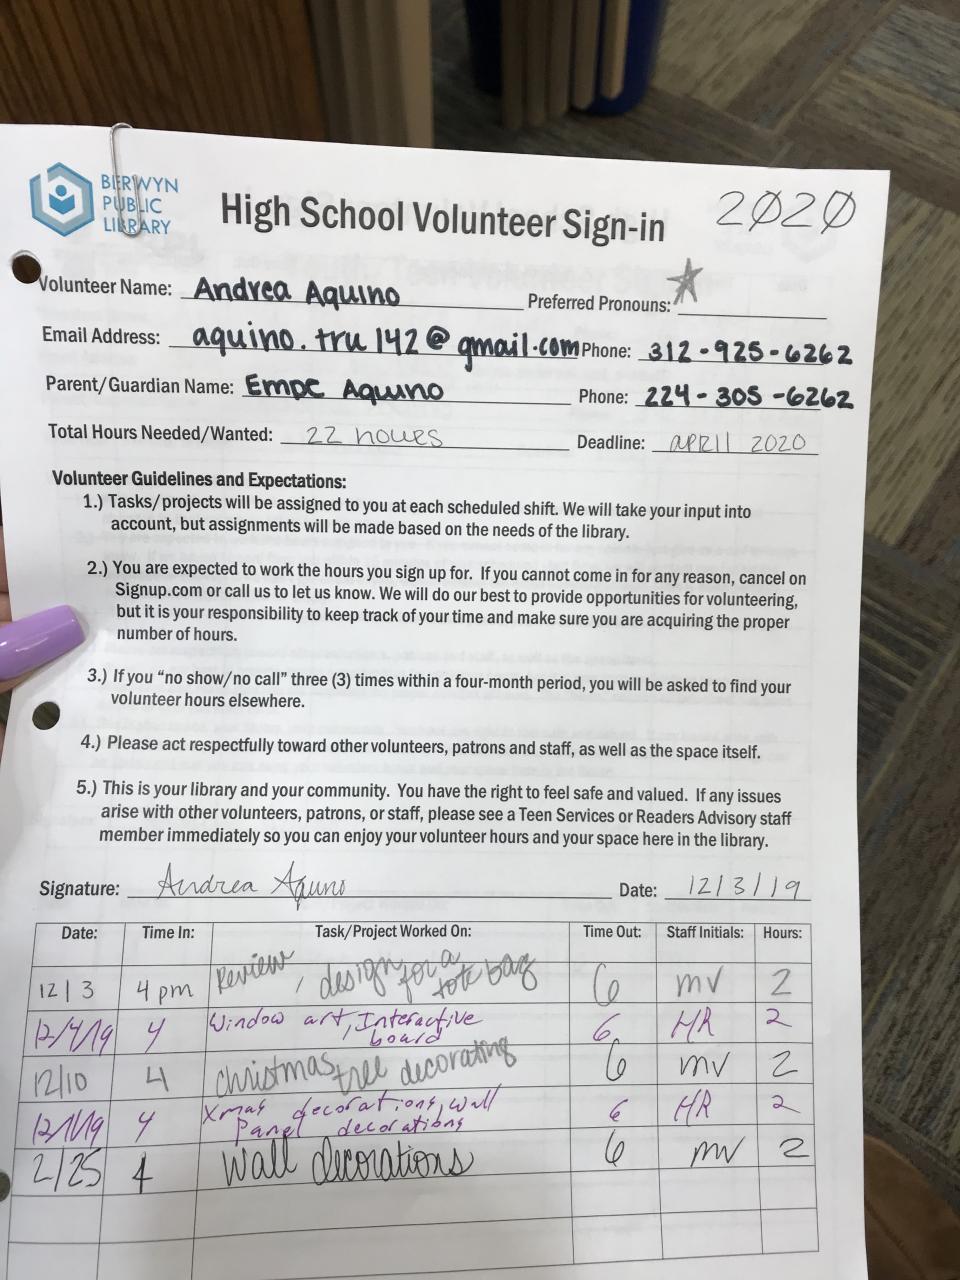 BERWYN
PUBLIC
LIBRARY
High School Volunteer Sign-in 2020
Volunteer Name: Andrea Aquino Preferred Pronouns:
Email Address: aquino.tru142@gmail.com Phone: 312-925-6262
Parent/Guardian Name: Empc Aquino Phone: 224-305-6262
Total Hours Needed/Wanted: 22 houes Deadline: APRIl 2020
Volunteer Guidelines and Expectations:
1.) Tasks/projects will be assigned to you at each scheduled shift. We will take your input into
account, but assignments will be made based on the needs of the library.
2.) You are expected to work the hours you sign up for. If you cannot come in for any reason, cancel on
Signup.com or call us to let us know. We will do our best to provide opportunities for volunteering,
but it is your responsibility to keep track of your time and make sure you are acquiring the proper
number of hours.
3.) If you “no show/no call” three (3) times within a four-month period, you will be asked to find your
volunteer hours elsewhere.
4.) Please act respectfully toward other volunteers, patrons and staff, as well as the space itself.
5.) This is your library and your community. You have the right to feel safe and valued. If any issues
arise with other volunteers, patrons, or staff, please see a Teen Services or Readers Advisory staff
member immediately so you can enjoy your volunteer hours and your space here in the library.
Signature: Andrea Aquino Date: 12/3/19
Date: Time In: Task/Project Worked On: Time Out: Staff Initials: Hours:
12/3 4 pm Review, design for a tote bag 6 mv 2
12/4/19 4 Window art, Interactive board 6 HR 2
12/10 4 christmas tree decorating 6 mv 2
12/11/19 4 Xmas decorations, wall Panel decorations 6 HR 2
2/25 4 Wall decorations 6 mv 2